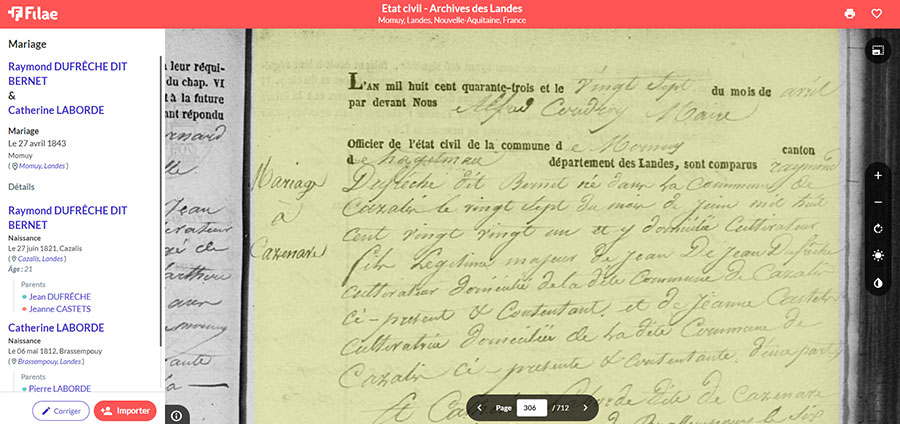 Filae
Etat civil - Archives des Landes
Momuy, Landes, Nouvelle-Aquitaine, France
Mariage
Raymond DUFRÊCHE DIT
BERNET
&
Catherine LABORDE
Mariage
Le 27 avril 1843
Momuy
( Momuy, Landes )
Détails
Raymond DUFRÊCHE DIT
BERNET
Naissance
Le 27 juin 1821, Cazalis
( Cazalis, Landes )
Âge : 21
Parents
Jean DUFRÊCHE
Jeanne CASTETS
Catherine LABORDE
Naissance
Le 06 mai 1812, Brassempouy
( Brassempouy, Landes )
Parents
Pierre LABORDE
Corriger
Importer
leur réqui-
du chap. VI
t à la future
ant répondu
Jean
L'AN mil huit cent quarante-trois et le vingt sept du mois de avril
par devant Nous Maire
Officier de l'état civil de la commune de Momuy canton
de hagetmau département des Landes, sont comparus raymond
Mariage
à
Cazenare
Dufrêche dit Bernet né dans la Commune de
Cazalis le vingt sept du mois de juin mil huit
cent vingt un et y domicilié Cultivateur
fils Légitime majeur de Jean De Jean Dufrêche
Cultivateur domicilié de la dite Commune de Cazalis
ci-present & Consentant, et de jeanne Castets
Cultivatrice domiciliée de la dite Commune de
Cazalis ci-presente & consentante d'une part
Et de Cazenare
Page 306 / 712